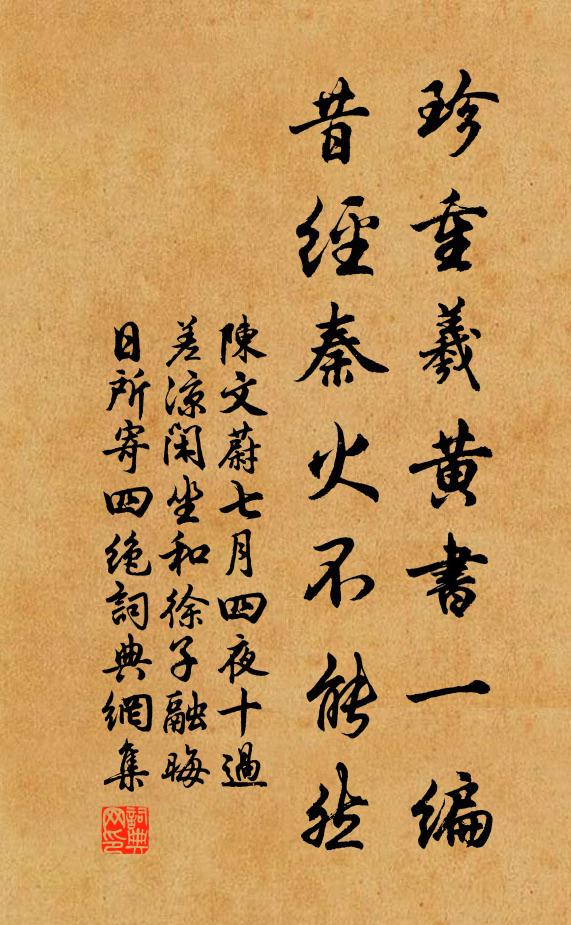 珍重羲黄書一编
昔經秦火不能然
陳文蔚七月四夜十過
差涼閑坐和徐子融晦
日所寄四絶詞典網集
詞典网印